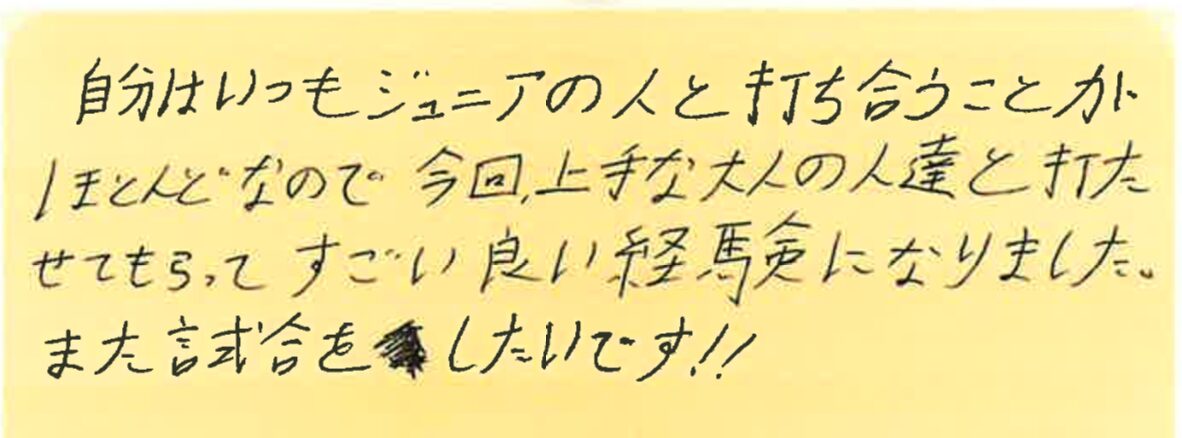 自分はいつもジュニアの人と打ち合うことが
ほとんどなので今回、上手な大人の人達と打た
せてもらってすごい良い経験になりました。
また試合をしたいです!!